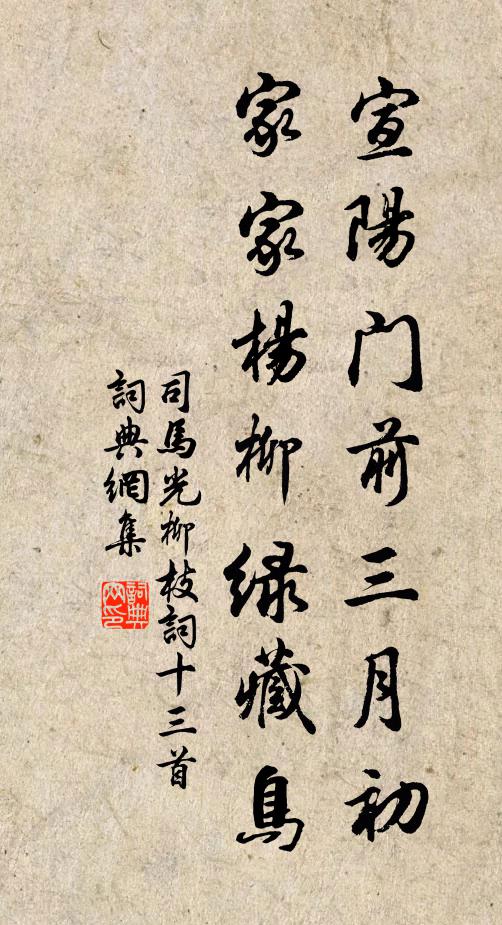 宣陽门前三月初
家家楊柳緑藏烏
司馬光柳枝詞十三首
詞典網集
詞典
网印